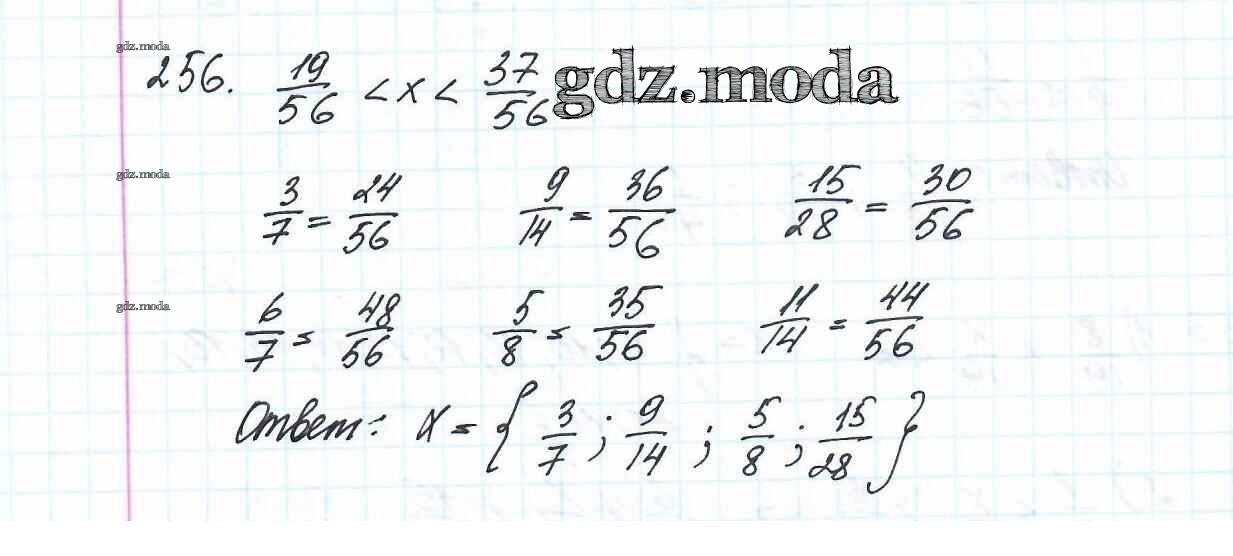 gdz.moda
256. 19/56 < x < 37/56 gdz.moda
gdz.moda
3/7 = 24/56 9/14 = 36/56 15/28 = 30/56
gdz.moda
6/7 = 48/56 5/8 = 35/56 11/14 = 44/56
Ответ: X = { 3/7 ; 9/14 ; 5/8 ; 15/28 }